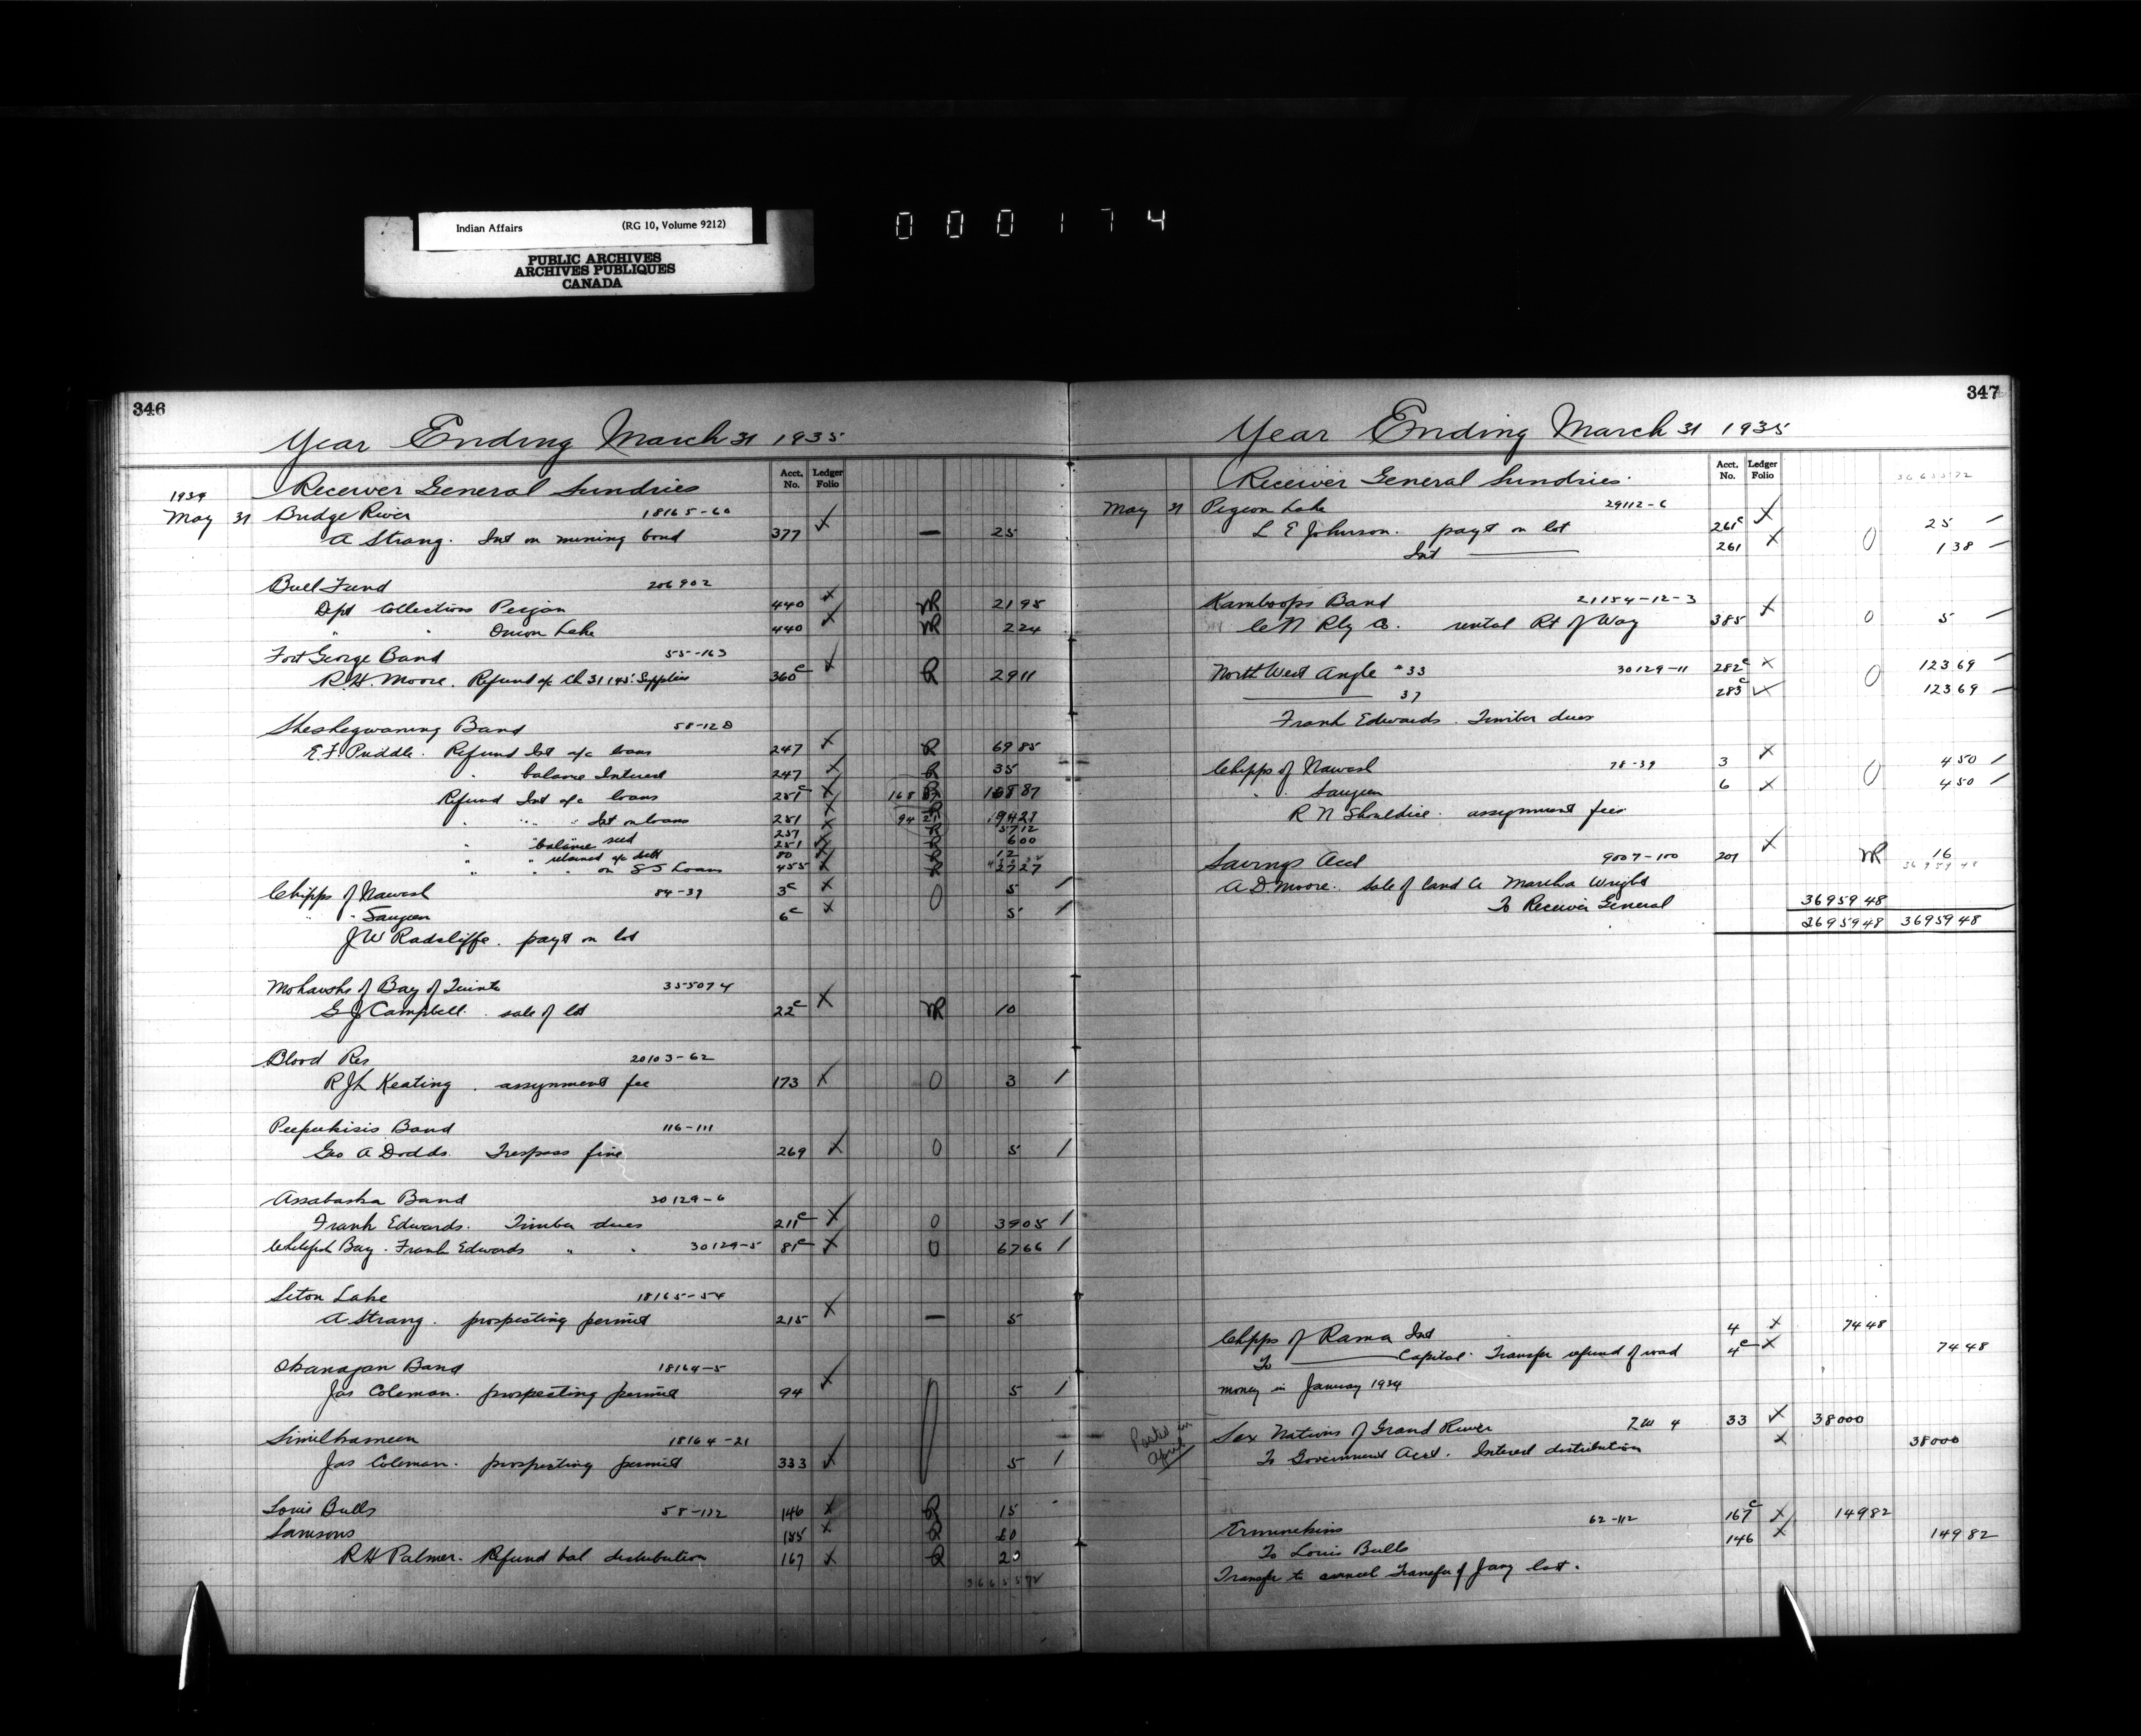 Indian Affairs (RG 10, Volume 9212)
PUBLIC ARCHIVES
ARCHIVES PUBLIQUES
CANADA
000174
346
Year Ending March 31 1935
Acct. No. Ledger Folio
1934 Receiver General Sundries
May 31 Bridge River 18165-60
A Strang. Int on mining bond 377 — 25
Bull Fund 206902
Dept Collections Peigan 440 NR 21 95
" " Onion Lake 440 NR 2 24
Fort George Band 55-163
R.H. Moore. Refund a/c Ch 31145 Supplies 360c R 29 11
Sheshegwaning Band 58-128
E.F. Priddle. Refund Int a/c loans 247 R 69 85
" balance Interest 247 R 35
Refund Int a/c loans 251c R 168 87
" " " Int on loans 251
" balance seed 251 R 6 00
" " retained a/c debt 80 R 12
" " " on S S Loans 455 R 27 27
Chipps of Nawash 84-39 3c 0 5 /
" " Saugeen 6c 5 /
J W Radcliffe. payt on lot
Mohawks of Bay of Quinte 355074
G J Campbell. sale of lot 22c NR 10
Blood Res 20103-62
R J L Keating. assignment fee 173 0 3 /
Peepeekisis Band 116-111
Geo A Dodds. Trespass fine 269 0 5 /
Assabaska Band 30129-6
Frank Edwards. Timber dues 211c 0 39 05 /
Whitefish Bay. Frank Edwards " " 30129-5 81c 0 67 66 /
Seton Lake 18165-54
A Strang. prospecting permit 215 — 5
Okanagan Band 18164-5
Jas Coleman. prospecting permit 94 5 /
Similkameen 18164-21
Jas Coleman. prospecting permit 333 0 5 /
Louis Bulls 58-122 146 R 15
Samsons 185 R 20
R H Palmer. Refund bal distribution 167 R 20
36655 72
347
Year Ending March 31 1935
Acct. No. Ledger Folio
Receiver General Sundries. 36655 72
May 31 Pigeon Lake 29112-6
L E Johnson. payt on lot 261c 25 —
Int 261 0 1 38 —
Kamloops Band 21154-12-3
C N Rly Co. rental Rt of Way 385 0 5 —
North West Angle #33 30129-11 282c 123 69 —
37 283c 0 123 69 —
Frank Edwards. Timber dues
Chipps of Nawash 78-39 3 4 50 /
" Saugeen 6 0 4 50 /
R N Shouldice. assignment fees
Savings Acct 9007-100 201 NR 16
36959 48
A.D. Moore. sale of land Martha Wright
To Receiver General 36959 48
36959 48 36959 48
Chipps of Rama Int 4 74 48
To Capital. Transfer refund of road 4c 74 48
money in January 1934
Posted in April
Six Nations of Grand River 33 380 00
To Government Acct. Interest distribution 380 00
Ermineskins 62-112 167c 149 82
To Louis Bulls 146 149 82
Transfer to cancel Transfer of Jany last.